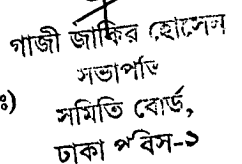 গাজী জাকির হোসেন
সভাপতি
ঃ)
সমিতি বোর্ড,
ঢাকা পবিস-১